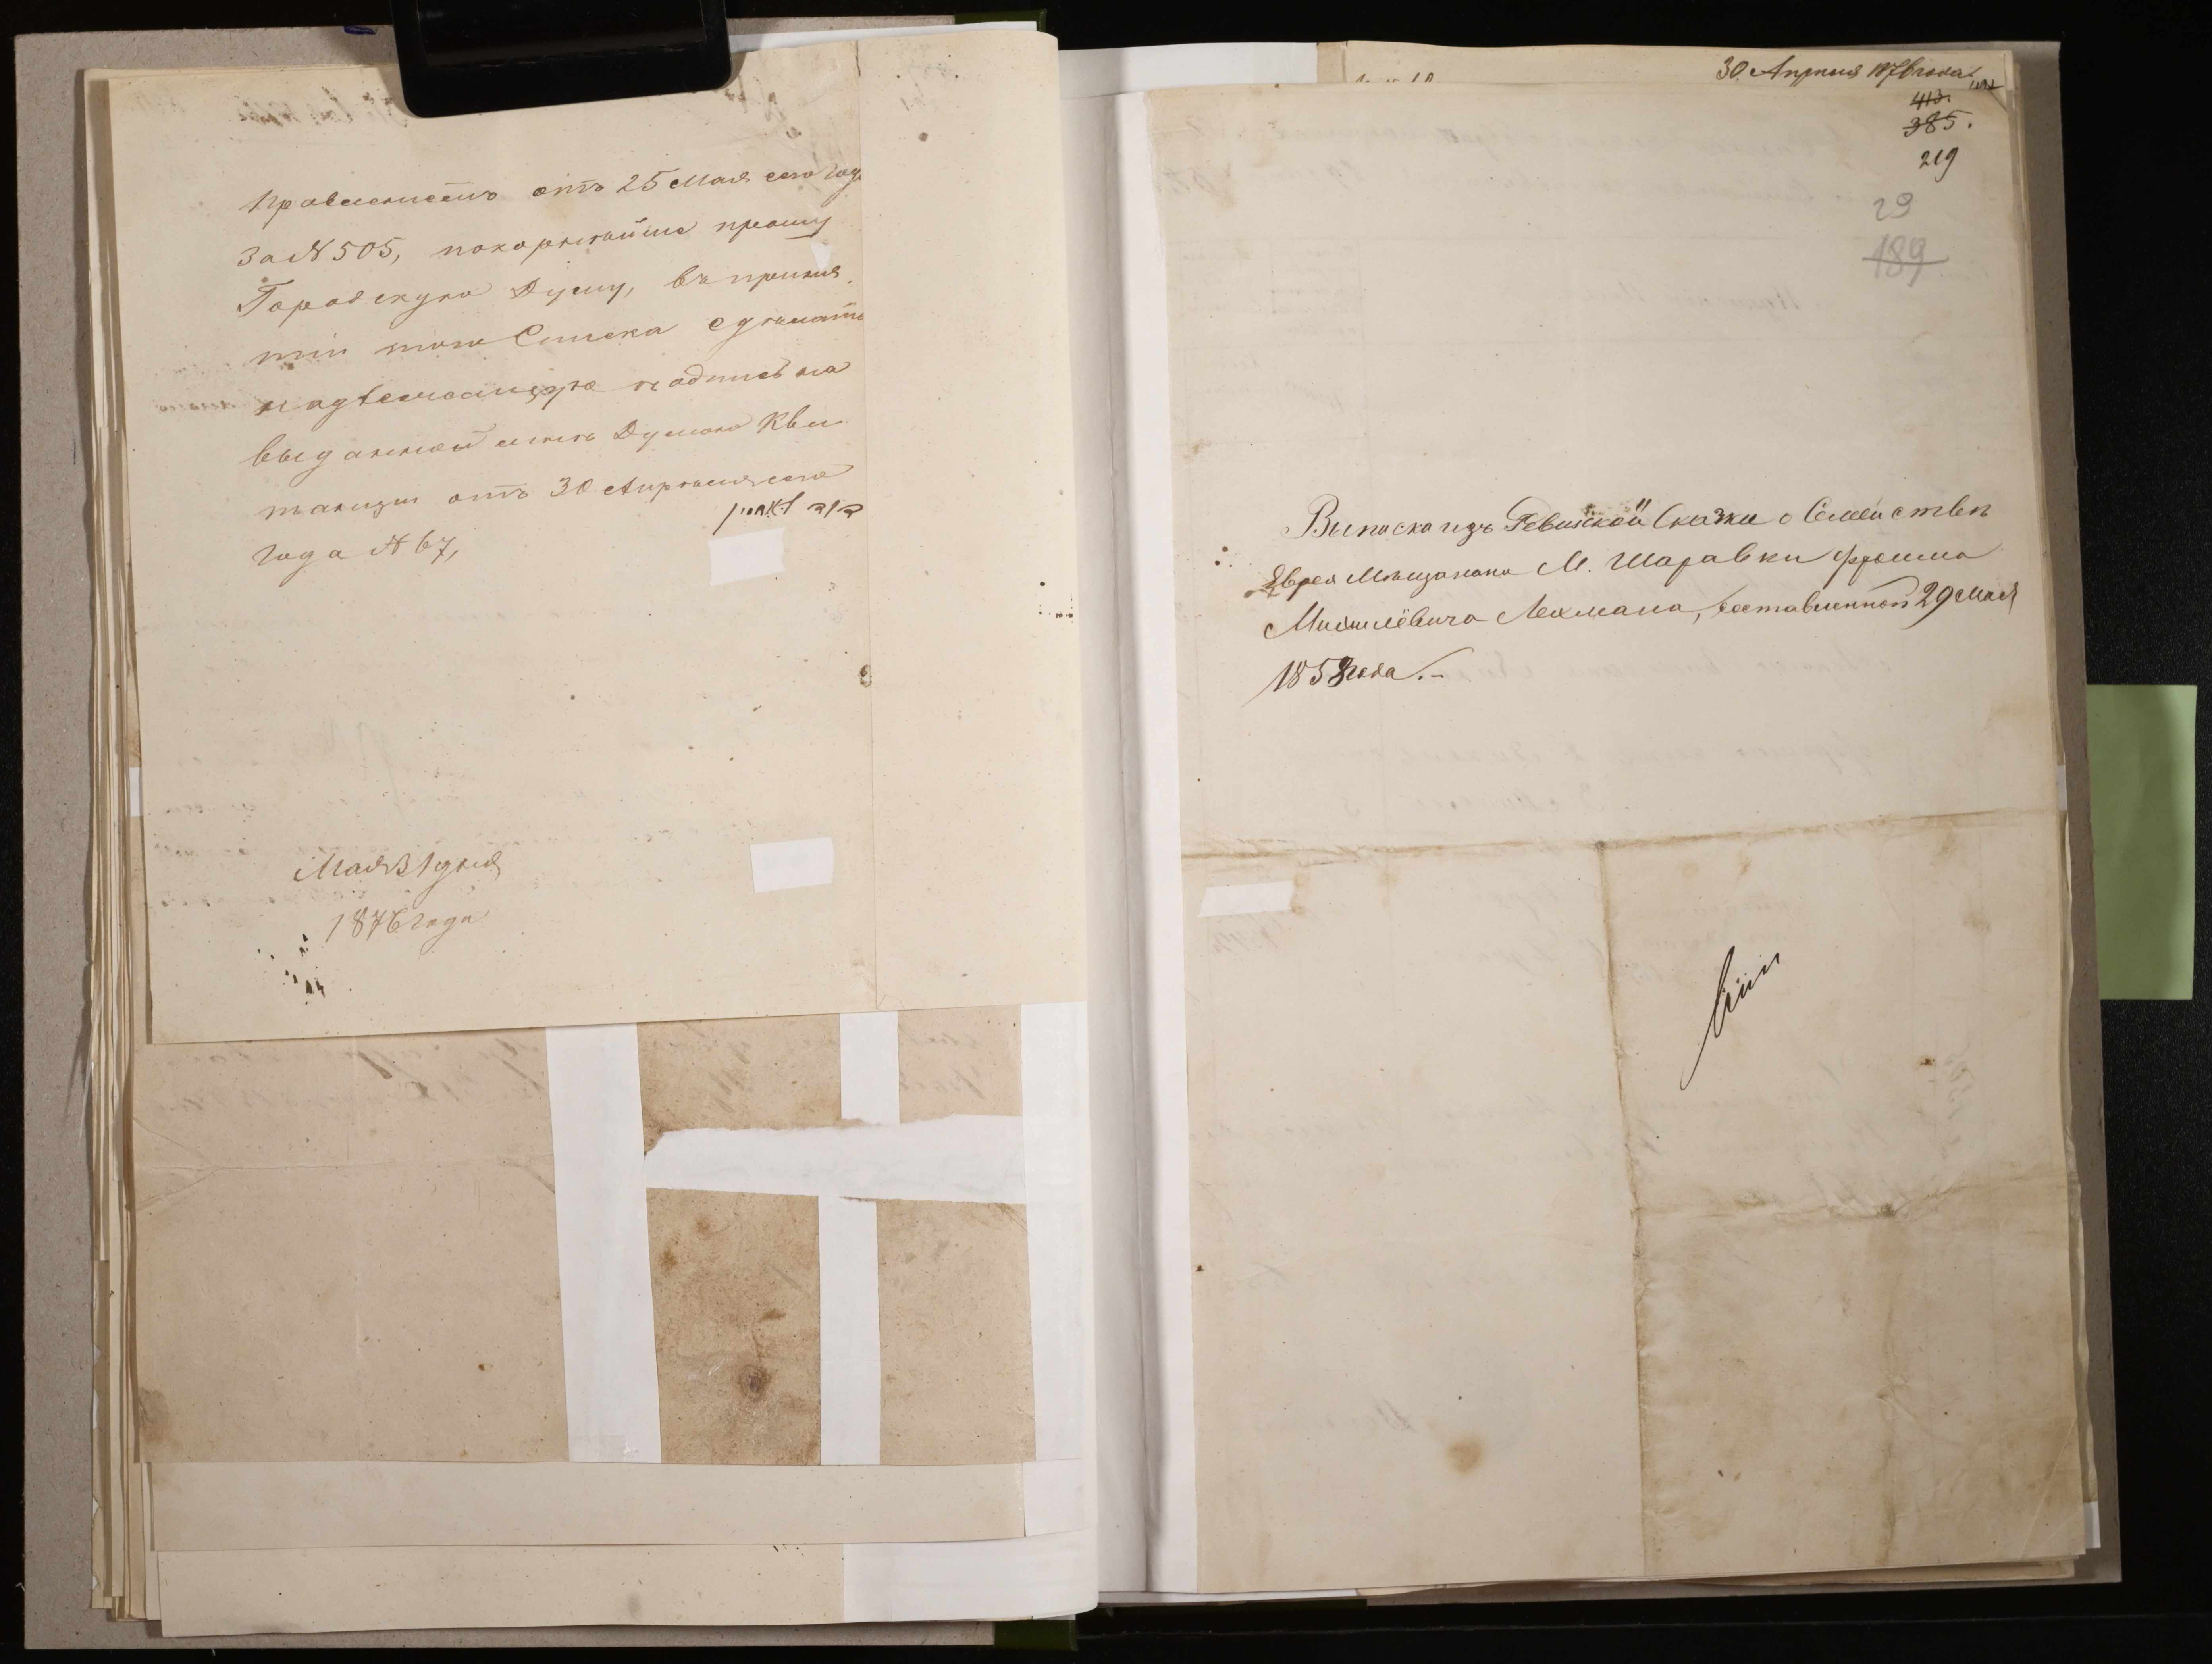 Правленiемъ отъ 25 Мая сего года
За № 505, покорнѣйше прошу
Городскую Думу, въ приня
тiи того Списка сдѣлать
надлежащую надпись на
выданной мнѣ Думою Кви
танцiи отъ 30 Апрѣля сего
года № 67,
Мая 31 дня
1876 года
30 Апрѣля 1876 года
413.
385.
219
29
189
Выписка изъ Ревизской Сказки о Семействѣ
Еврея Мѣщанина М. Шаравки Фроима
Лехмана, составленной 29 Мая
1858 года.–